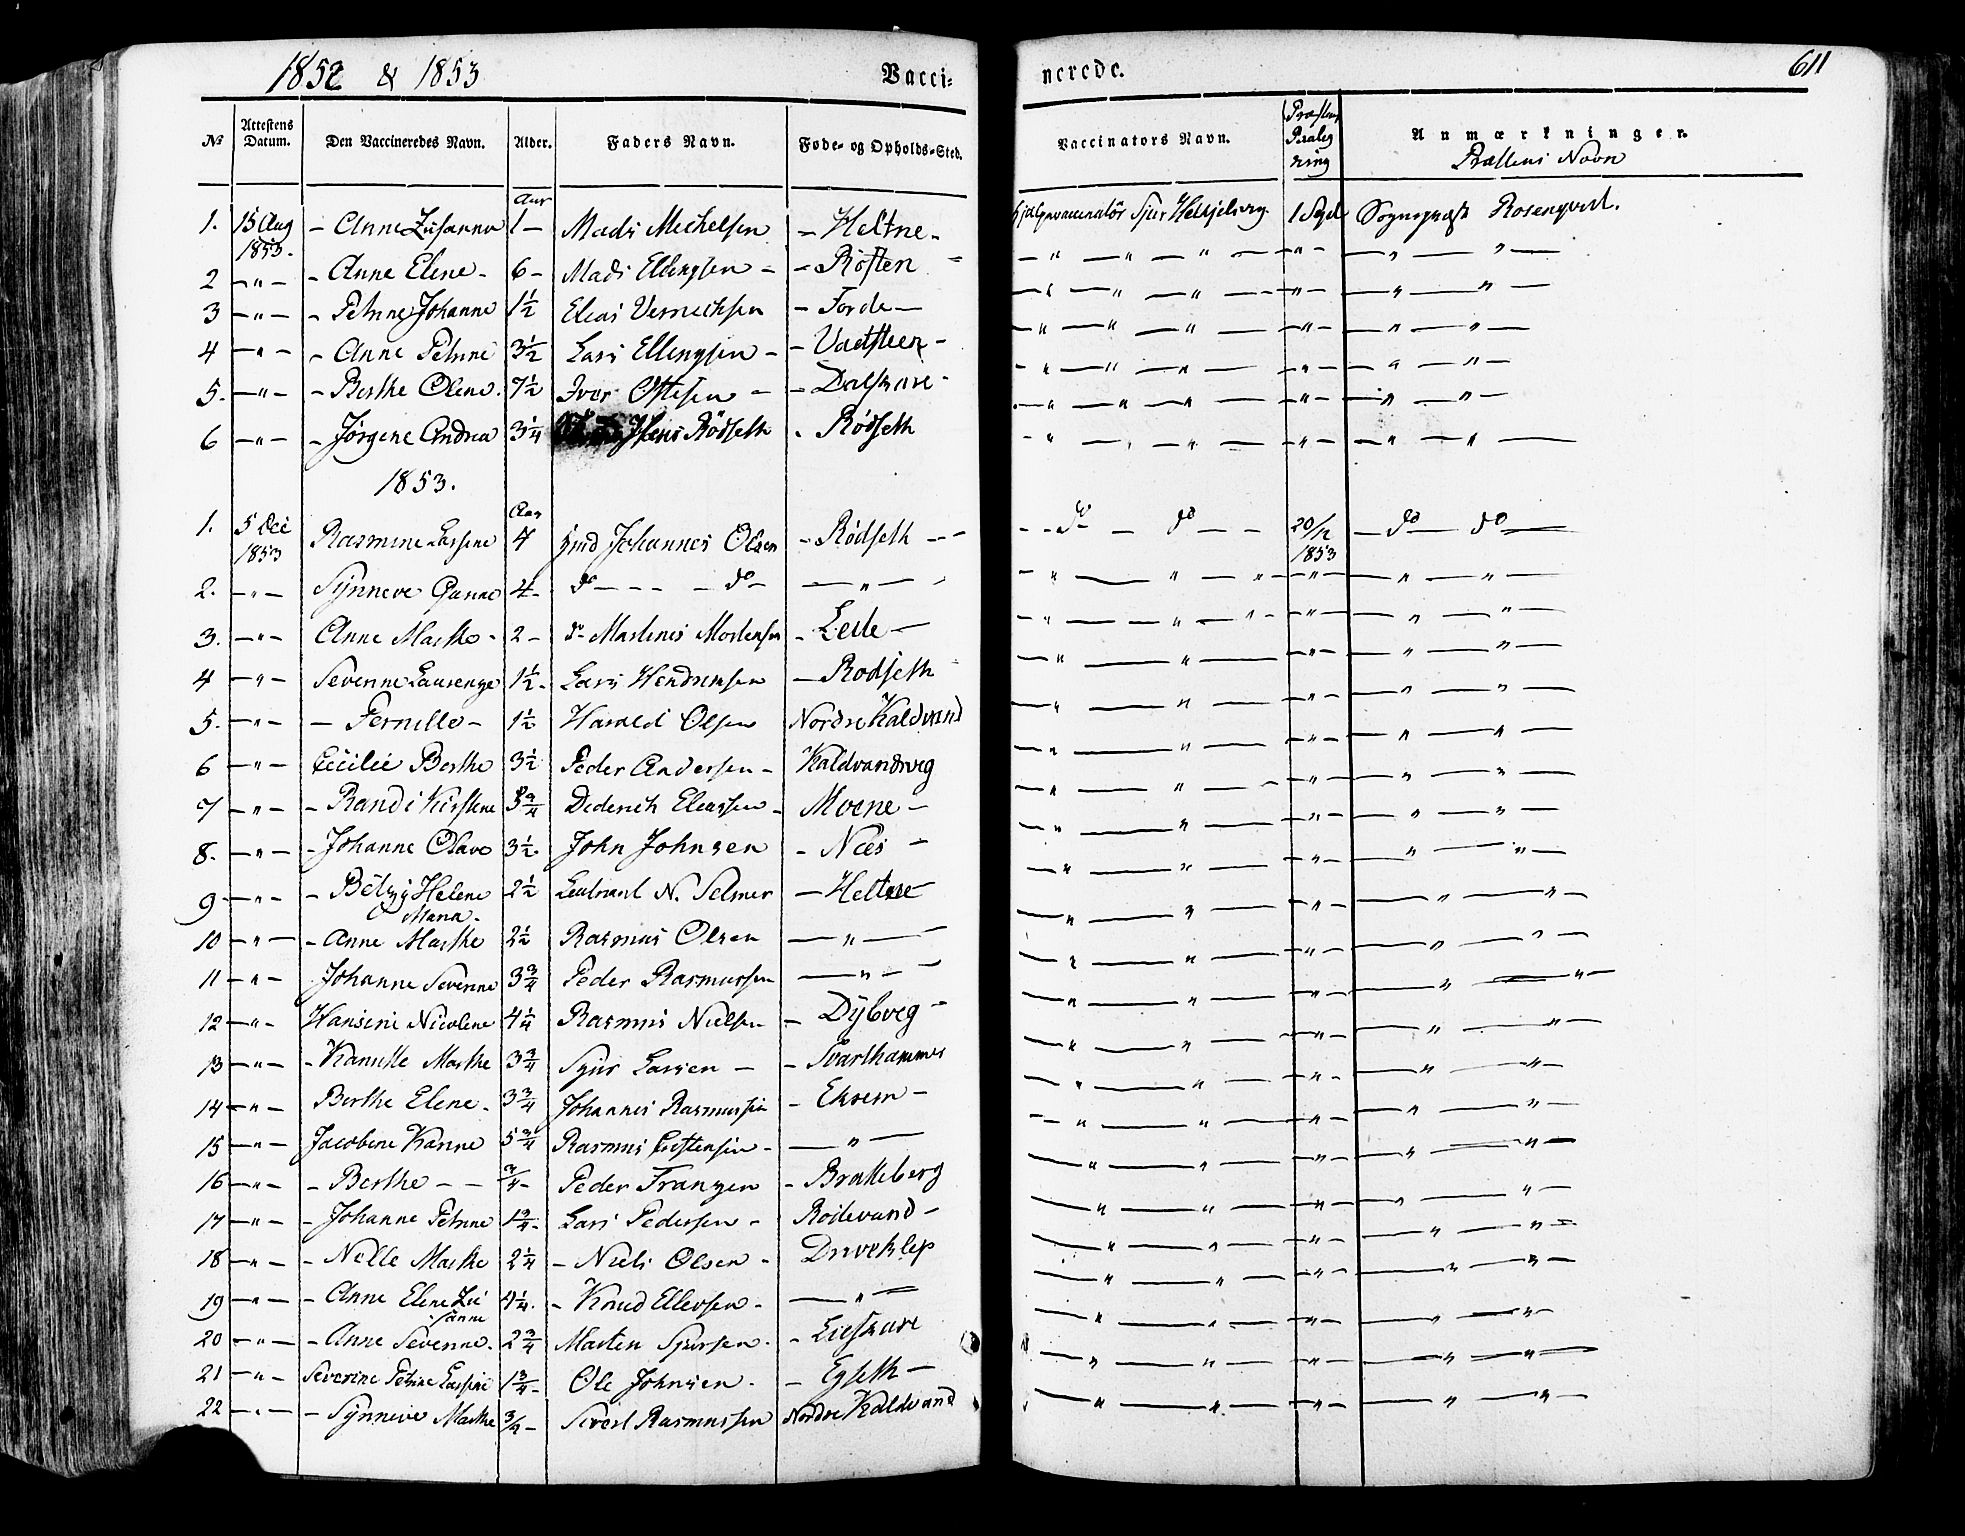 1852 & 1853 Vacci- nerede. 611
No Attestens Datum. Den Vaccineredes Navn. Alder. Faders Navn. Føde- og Opholds-Sted. Vaccinators Navn. Anmærkninger.
Præstens Navn
Aar
1. 15 Aug 1853. - Anne Zusanna 1 - Mads Michelsen - Heltne - Hjelpevaccinatör Sjur 1 Sept Sognepræst Rosenqvist.
2 - " - - Anne Elene - 6 - Mads Ellingsen - - Røsten - " - " - " - - " - - " - " -
3 - " - - Petrine Johanne 1½ Elias Vernichsen - Forde - - " - " - " - - " - - " - " -
4 - " - - Anne Petrine 3½ Lars Ellingsen - - Vadsteen - - " - " - " - - " - - " - " -
5. - " - - Berthe Oline. 7½ Iver Ottesen - - Dalskare - - " - " - " - - " - - " - " -
6 - " - - Jørgene Andrea 3¼ Jens Rödseth - Rödseth - " - " - " - - " - - " - " -
1853.
Aar
1. 5 Dec 1853 Rasmine Lassine 7 Johannes Olsen - Rödseth - - - - do - do - - 20/12 1853 - do - do -
2. - " - Synneve Gunne 4 - do - - - - do - - " - - " - " - " - - " - - " - " -
3. - " - Anne Marthe - 2 - do Martinus Mortensen - Leite - - " - " - " - - " - - " - " -
4 - " - Severine Laurenze 1½ - Lars Hendricksen - Rodseth - " - " - - " - - " - " -
5. - " - - Pernille - 1½ Harald Olsen Nordre Kaldvand - " - " - - " - - " - " -
6 - " - Cecilie Berthe 3½ Peder Andersen - Kaldvandveg - " - " - - " - - " - " -
7 - " - - Randi Kirstine 3¾ Diderich Eliassen - Moene - - " - " - - " - - " - " -
8. - " - - Johanne Olave 3½. John Johnsen - Nees - - " - " - - " - - " - " -
9 - " - - Betzy Helene 2½ Leutnant N. Selmer - Heltne - - " - " - - " - - " - " -
Maria -
10 - " - - Anne Marthe 2½ Rasmus Olsen - " - - " - " - - " - - " - " -
11 - " - Johanne Severine 3¾ Peder Rasmussen - " - - " - " - - " - - " - " -
12 - " - Hansine Nicoline 4¼ Rasmus Nielsen - Dybveg - - " - " - - " - - " - " -
13 - " - - Kanutte Marthe 3¾ Sjur Larsen - - Svarthammer - " - " - - " - - " - " -
14 - " - Berthe Elene - 3¾ Johannes Rasmussen - Eksem - - " - " - - " - - " - " -
15 - " - Jacobine Hanne 5¾ Rasmus Cristensen - - " - - " - " - - " - - " - " -
16 - " - - Berthe - - ¾ - Peder Franzen - Brakeberg - " - " - - " - - " - " -
17 - " - - Johanne Petrine 1¾ - Lars Pedersen - Rodevand - - " - " - - " - - " - " -
18 - " - - Nelle Marthe 2¼ - Niels Olsen - Driveklep - " - " - - " - - " - " -
19 - " - - Anne Elene Zu 4¼. - Knud Ellevsen - - " - - " - " - - " - - " - " -
sanne
20 - " - - Anne Severine. 2¾ Marten Sjursen - - Lieskare - " - " - - " - - " - " -
21 - " - Severine Petrine Lassine 1¾ - Ole Johnsen - - Egseth - - " - " - - " - - " - " -
22 - " - - Synneve Marthe ¾ - Sivert Rasmussen Nordre Kaldvand - " - " - - " - - " - " -